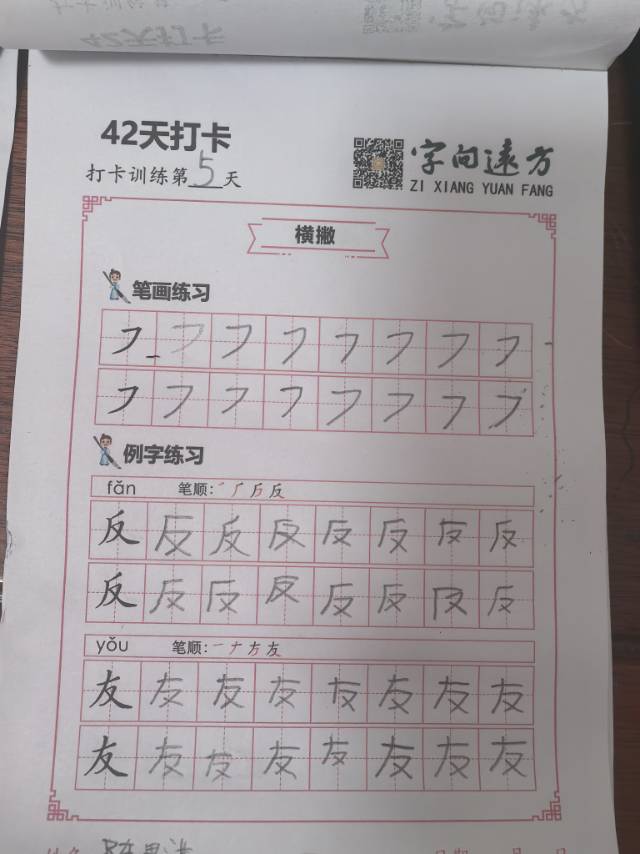 42天打卡
打卡训练第5天
字向远方
ZI XIANG YUAN FANG
横撇
笔画练习
フフフフフフフフ
フフフフフフフフ
例字练习
fǎn 笔顺：一厂反反
反反反反反反反反
反反反反反反反反
yǒu 笔顺：一ナ方友
友友友友友友友友
友友友友友友友友